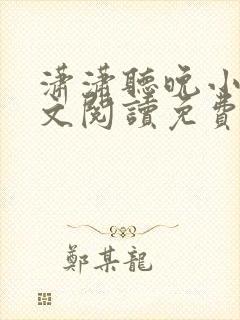 瀟瀟聽晚小
文閱讀免費
鄭某龍